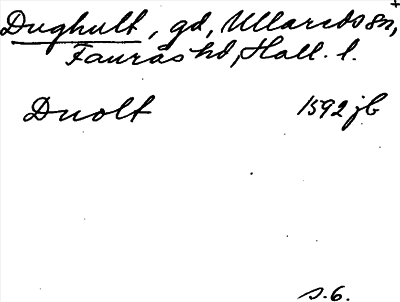 Dughult, gd, Ullareds sn,+
Faurås hd, Hall. l.
Duolt 1592 jb
s. 6.